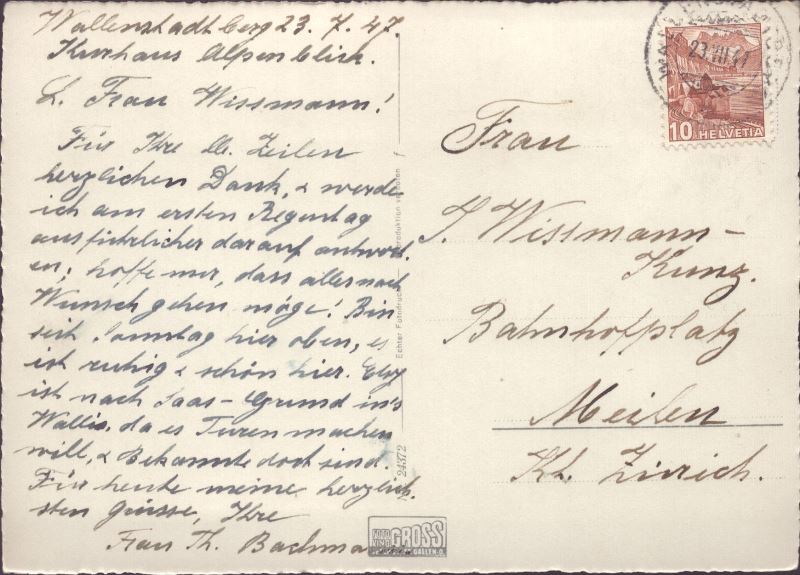 Wallenstadtberg 23. 7. 47.
Kurhaus Alpenblick.
L. Frau Wissmann!
Für Ihre lb. Zeilen
herzlichen Dank, & werde
ich am ersten Regentag
ausführlicher darauf antwort-
en; hoffe nur, dass alles nach
Wunsch gehen möge! Bin
seit Sonntag hier oben, es
ist ruhig & schön hier. Elsy
ist nach Saas-Grund in's
Wallis, da es Turen machen
will, & Bekannte dort sind.
Für heute meine herzlich-
sten Grüsse, Ihre
Frau Th. Bachmann
Echter Fotodruck
Reproduktion verboten
24372
FOTO
GROSS
ST. GALLEN-O.
23.VII.47
10 HELVETIA
Frau
S. Wissmann-
Kunz.
Bahnhofplatz
Meilen
Kt. Zürich.